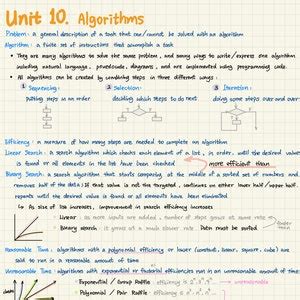 Unit 10. Algorithms
Problem : a general description of a task that can/cannot be solved with an algorithm
Algorithm : a finite set of instructions that accomplish a task
They are many algorithms to solve the same problem, and many ways to write/express one algorithm
including natural language, pseudocode, diagrams, and are implemented using programming code.
All algorithms can be created by combining steps in three different ways :
① Sequencing: ② Selection: ③ Iteration:
putting steps in an order deciding which steps to do next doing some steps over and over
Efficiency : a measure of how many steps are needed to complete an algorithm
Linear Search : a search algorithm which checks each element of a list, in order, until the desired value
is found or all elements in the list have been checked more efficient than
Binary Search : a search algorithm that starts comparing at the middle of a sorted set of numbers and
removes half of the data; If that value is not the targeted, continues on either lower half/upper half,
repeats until the desired value is found or all elements have been eliminated
As size of list increases, improvement in search efficiency increases
Linear : as more inputs are added, number of steps grows at same rate
Binary search : it grows at a much slower rate Data must be sorted
Reasonable Time : algorithms with a polynomial efficiency or lower (constant, linear, square, cube) are
said to run in a reasonable amount of time
Unreasonable Time : algorithms with exponential or factorial efficiencies run in an unreasonable amount of time
Exponential / Group Raffle
Polynomial / Pair Raffle